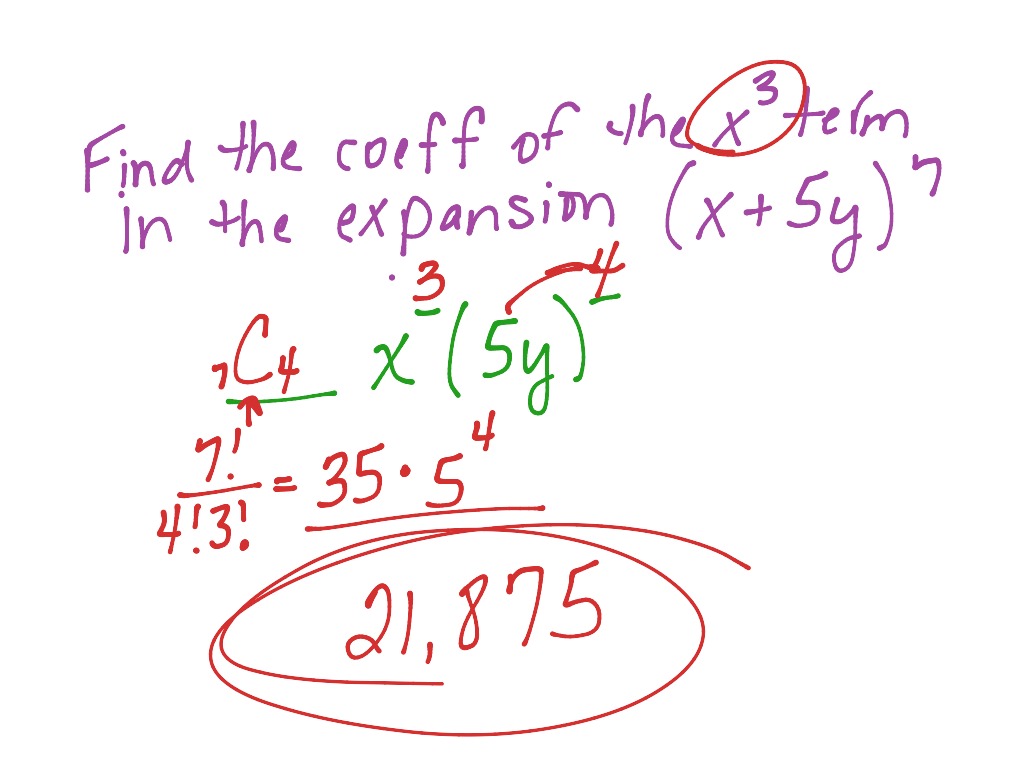 Find the coeff of the x³ term
in the expansion (x+5y)⁷
₇C₄ x³(5y)⁴
7!/4!3! = 35 · 5⁴
21,875